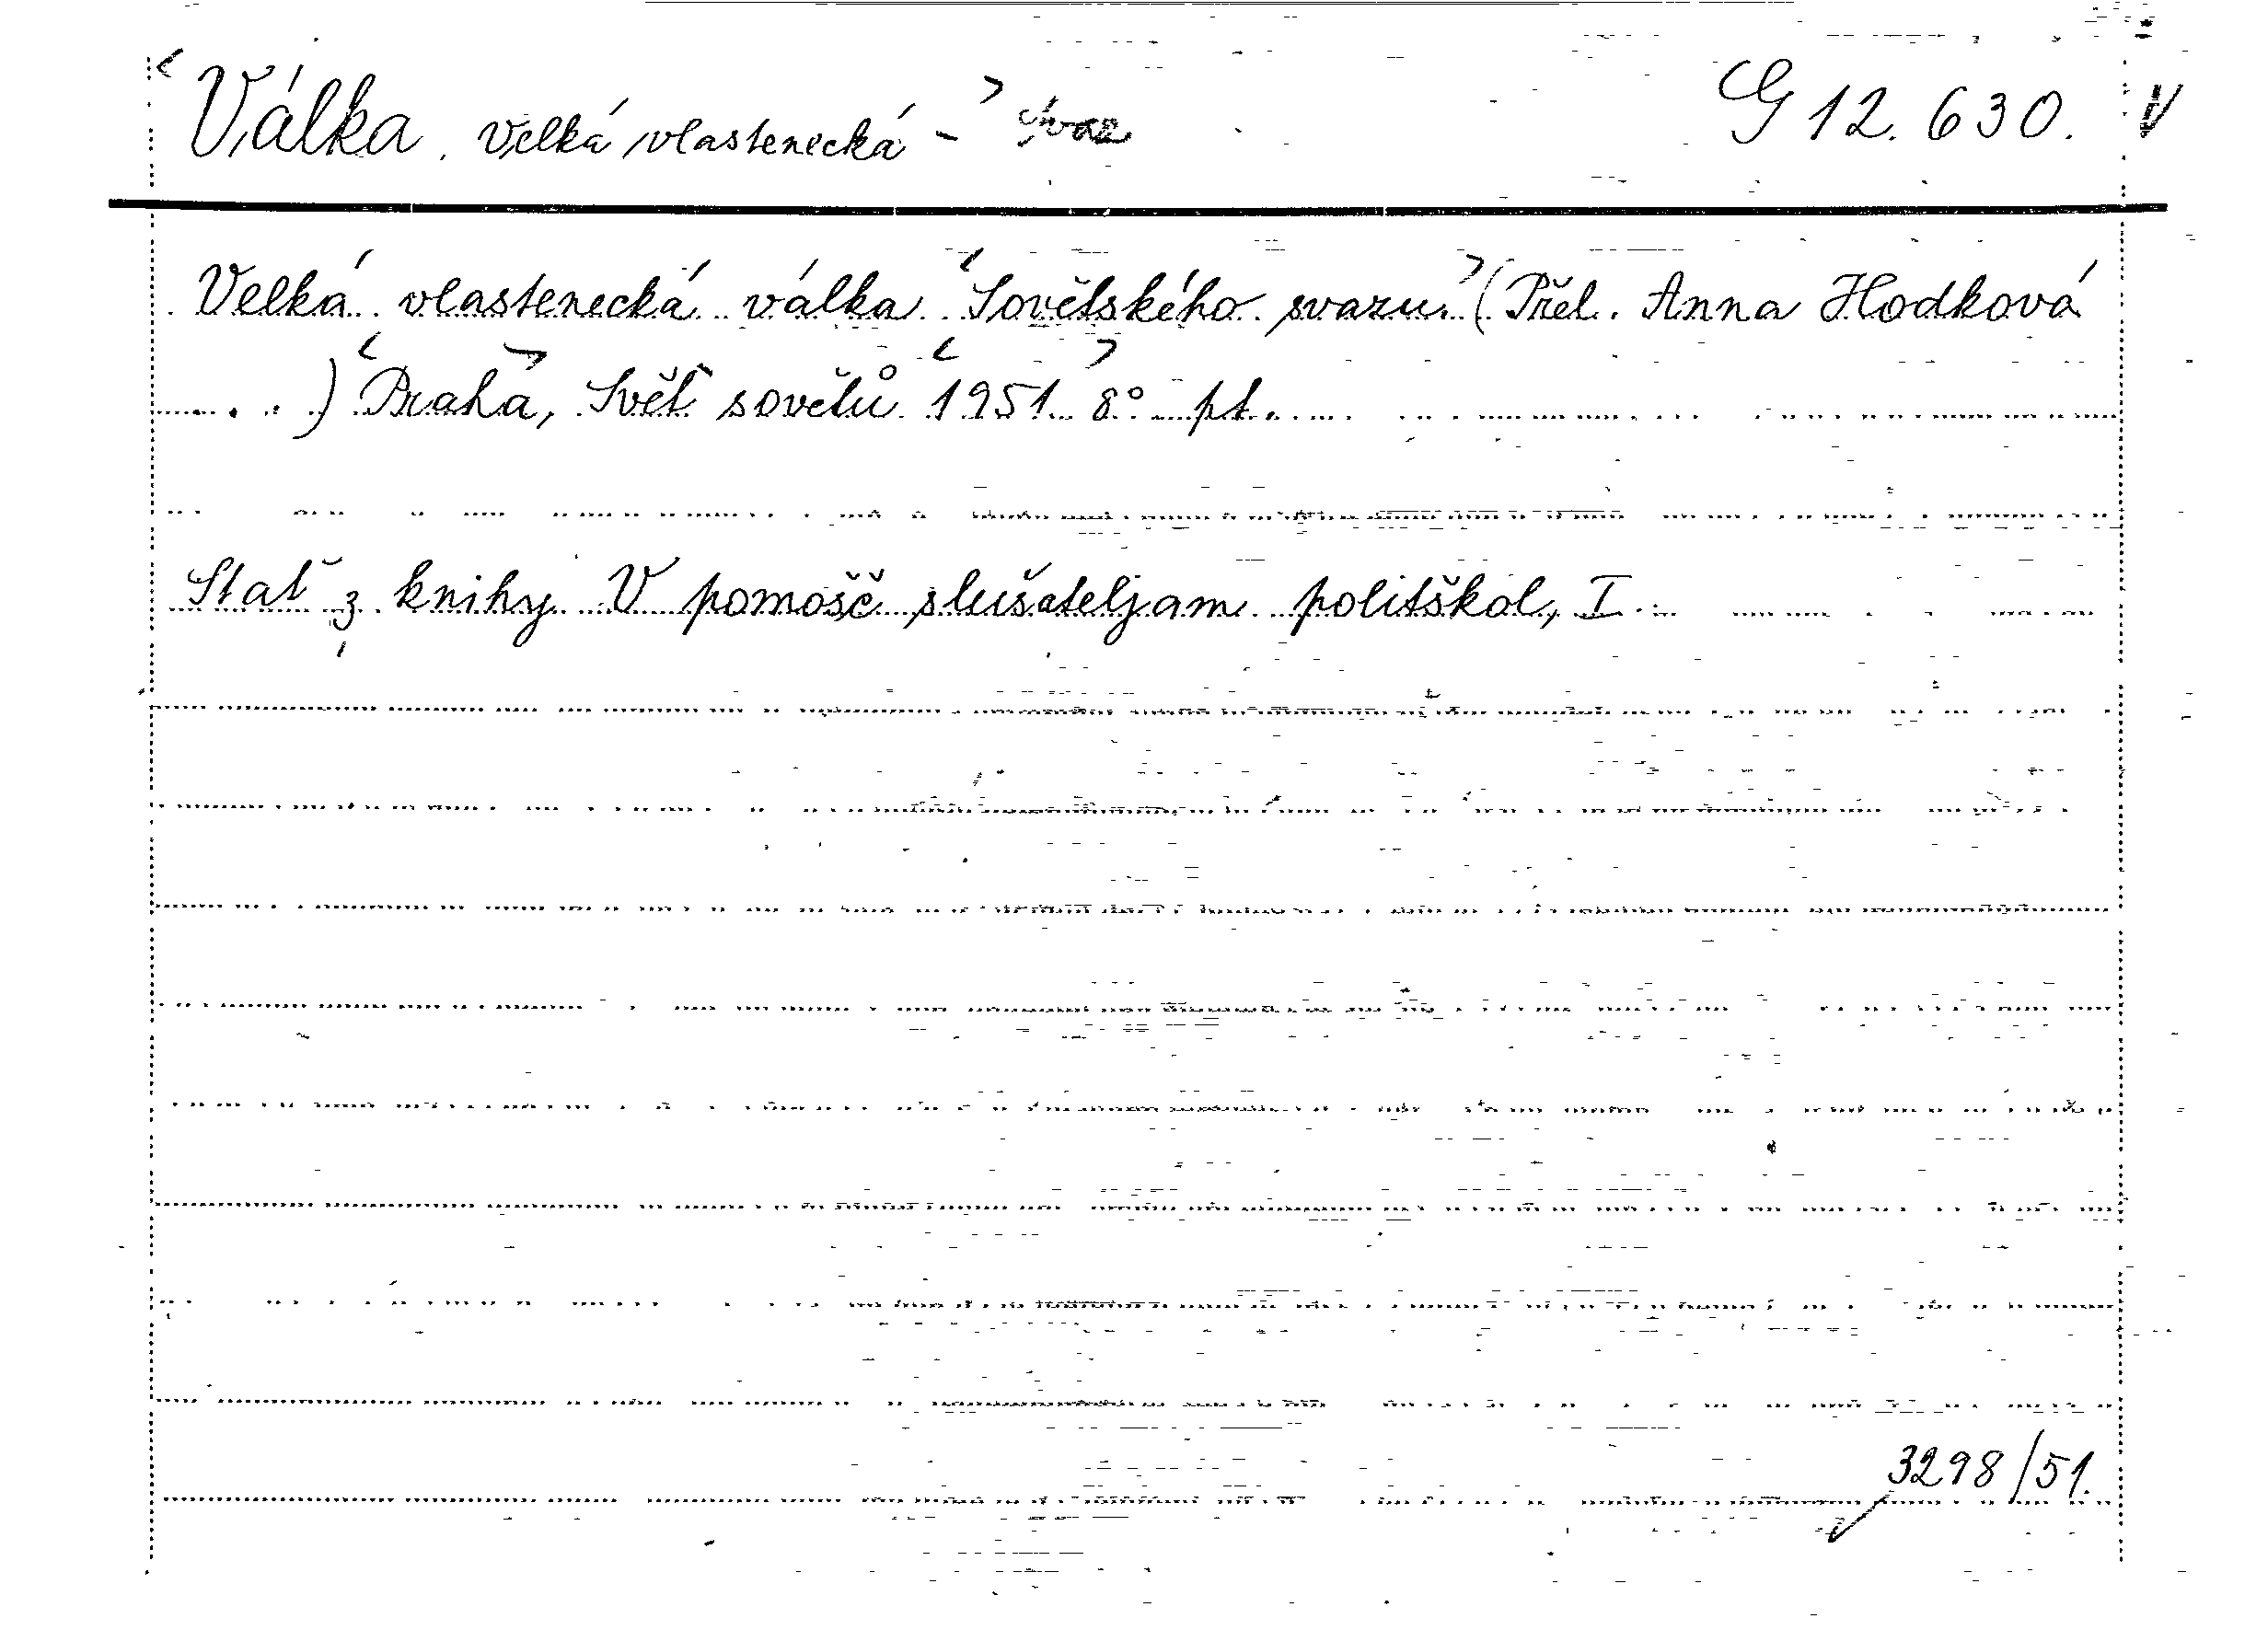 Válka velká vlastenecká - G 12.630. V
Velká vlastenecká válka Sovětského svazu. (Přel. Anna Hodková
...) Praha, Svět sovětů 1951. 8° pt.
Stať z knihy V pomošč slušateljam politškol, I.
3298/51.